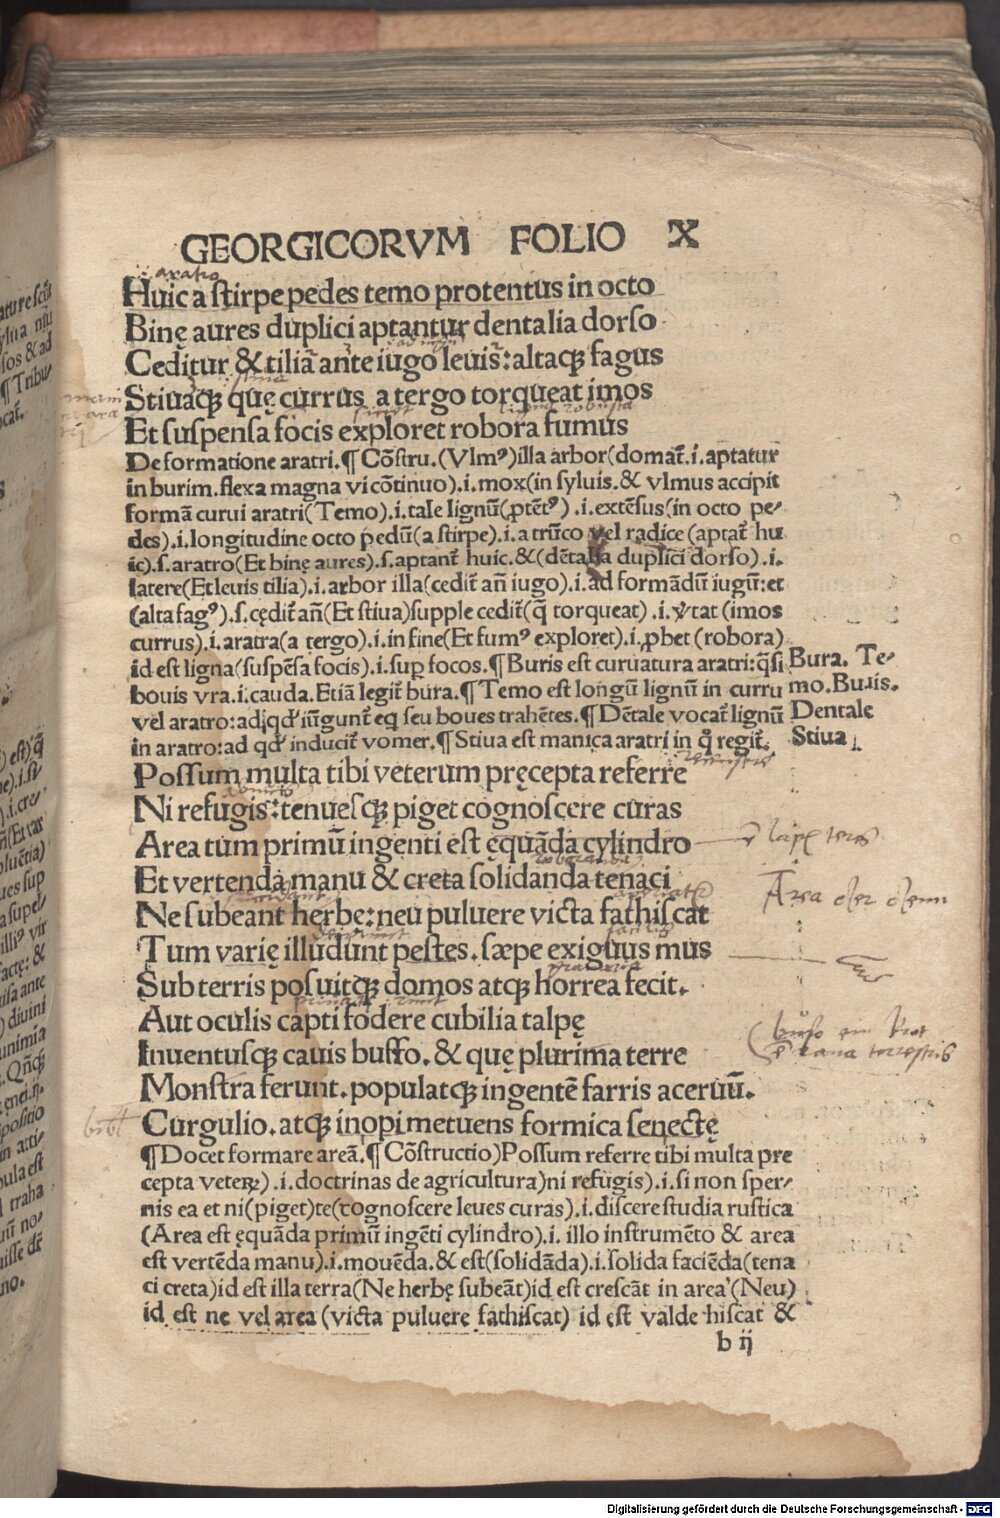 GEORGICORVM FOLIO X
aratro
Huic a stirpe pedes temo protentus in octo
Binę aures duplici aptantur dentalia dorso
Ceditur & tiliā ante iugo leuis: altaqꝫ fagus
Stiuaqꝫ quę currus a tergo torqueat imos
Et suspensa focis exploret robora fumus
De formatione aratri. ¶ Cōstru. (Vlmꝰ) illa arbor (domat̄ .i. aptatur
in burim. flexa magna vi cōtinuo) .i. mox (in syluis. & vlmus accipit
formā curui aratri (Temo) .i. tale lignū (ꝓtētꝰ) .i. extēsus (in octo pe-
des) .i. longitudine octo pedū (a stirpe) .i. a trūco vel radice (aptat̄ hu
ic) .s. aratro (Et binę aures) .s. aptant̄ huic. & (dētalia duplici dorso) .i.
latere (Et leuis tilia) .i. arbor illa (cedit̄ an̄ iugo) .i. ad formādū iugū: et
(alta fagꝰ) .s. cędit̄ an̄ (Et stiua) supple cedit̄ (q̄ torqueat) .i. v̓tat (imos
currus) .i. aratra (a tergo) .i. in fine (Et fumꝰ exploret) .i. ꝓbet (robora)
id est ligna (suspēsa focis) .i. sup̱ focos. ¶ Buris est curuatura aratri: q̄si
bouis vra .i. cauda. Etiā legit̄ bura. ¶ Temo est longū lignū in curru
vel aratro: ad qd̓ iūgunt̄ eq seu boues trahētes. ¶ Dētale vocat̄ lignū
in aratro: ad qd̓ inducit̄ vomer. ¶ Stiua est manica aratri in q̄ regit̄.
Bura. Te-
mo. Buris.
Dentale
Stiua
Possum multa tibi veterum pręcepta referre
Ni refugis: tenuesqꝫ piget cognoscere curas
Area tum primū ingenti est ęquāda cylindro
Et vertenda manu & creta solidanda tenaci
Ne subeant herbę: neu puluere victa fathiscat
Tum varię illudunt pestes. sæpe exiguus mus
Sub terris posuitqꝫ domos atqꝫ horrea fecit.
Aut oculis capti fodere cubilia talpę
Inuentusqꝫ cauis buffo. & quę plurima terre
Monstra ferunt. populatqꝫ ingentē farris aceruū.
Curgulio. atqꝫ inopi metuens formica senectę
rana terrestris
¶ Docet formare areā. ¶ Cōstructio) Possum referre tibi multa pre
cepta veteꝝ) .i. doctrinas de agricultura) ni refugis) .i. si non sper-
nis ea et ni (piget) te (cognoscere leues curas) .i. discere studia rustica
(Area est ęquāda primū ingēti cylindro) .i. illo instrumēto & area
est vertēda manu) .i. mouēda. & est (solidāda) .i. solida faciēda (tena
ci creta) id est illa terra (Ne herbę subeāt) id est crescāt in area (Neu)
id est ne vel area (victa puluere fathiscat) id est valde hiscat &
b ij
Digitalisierung gefördert durch die Deutsche Forschungsgemeinschaft - DFG